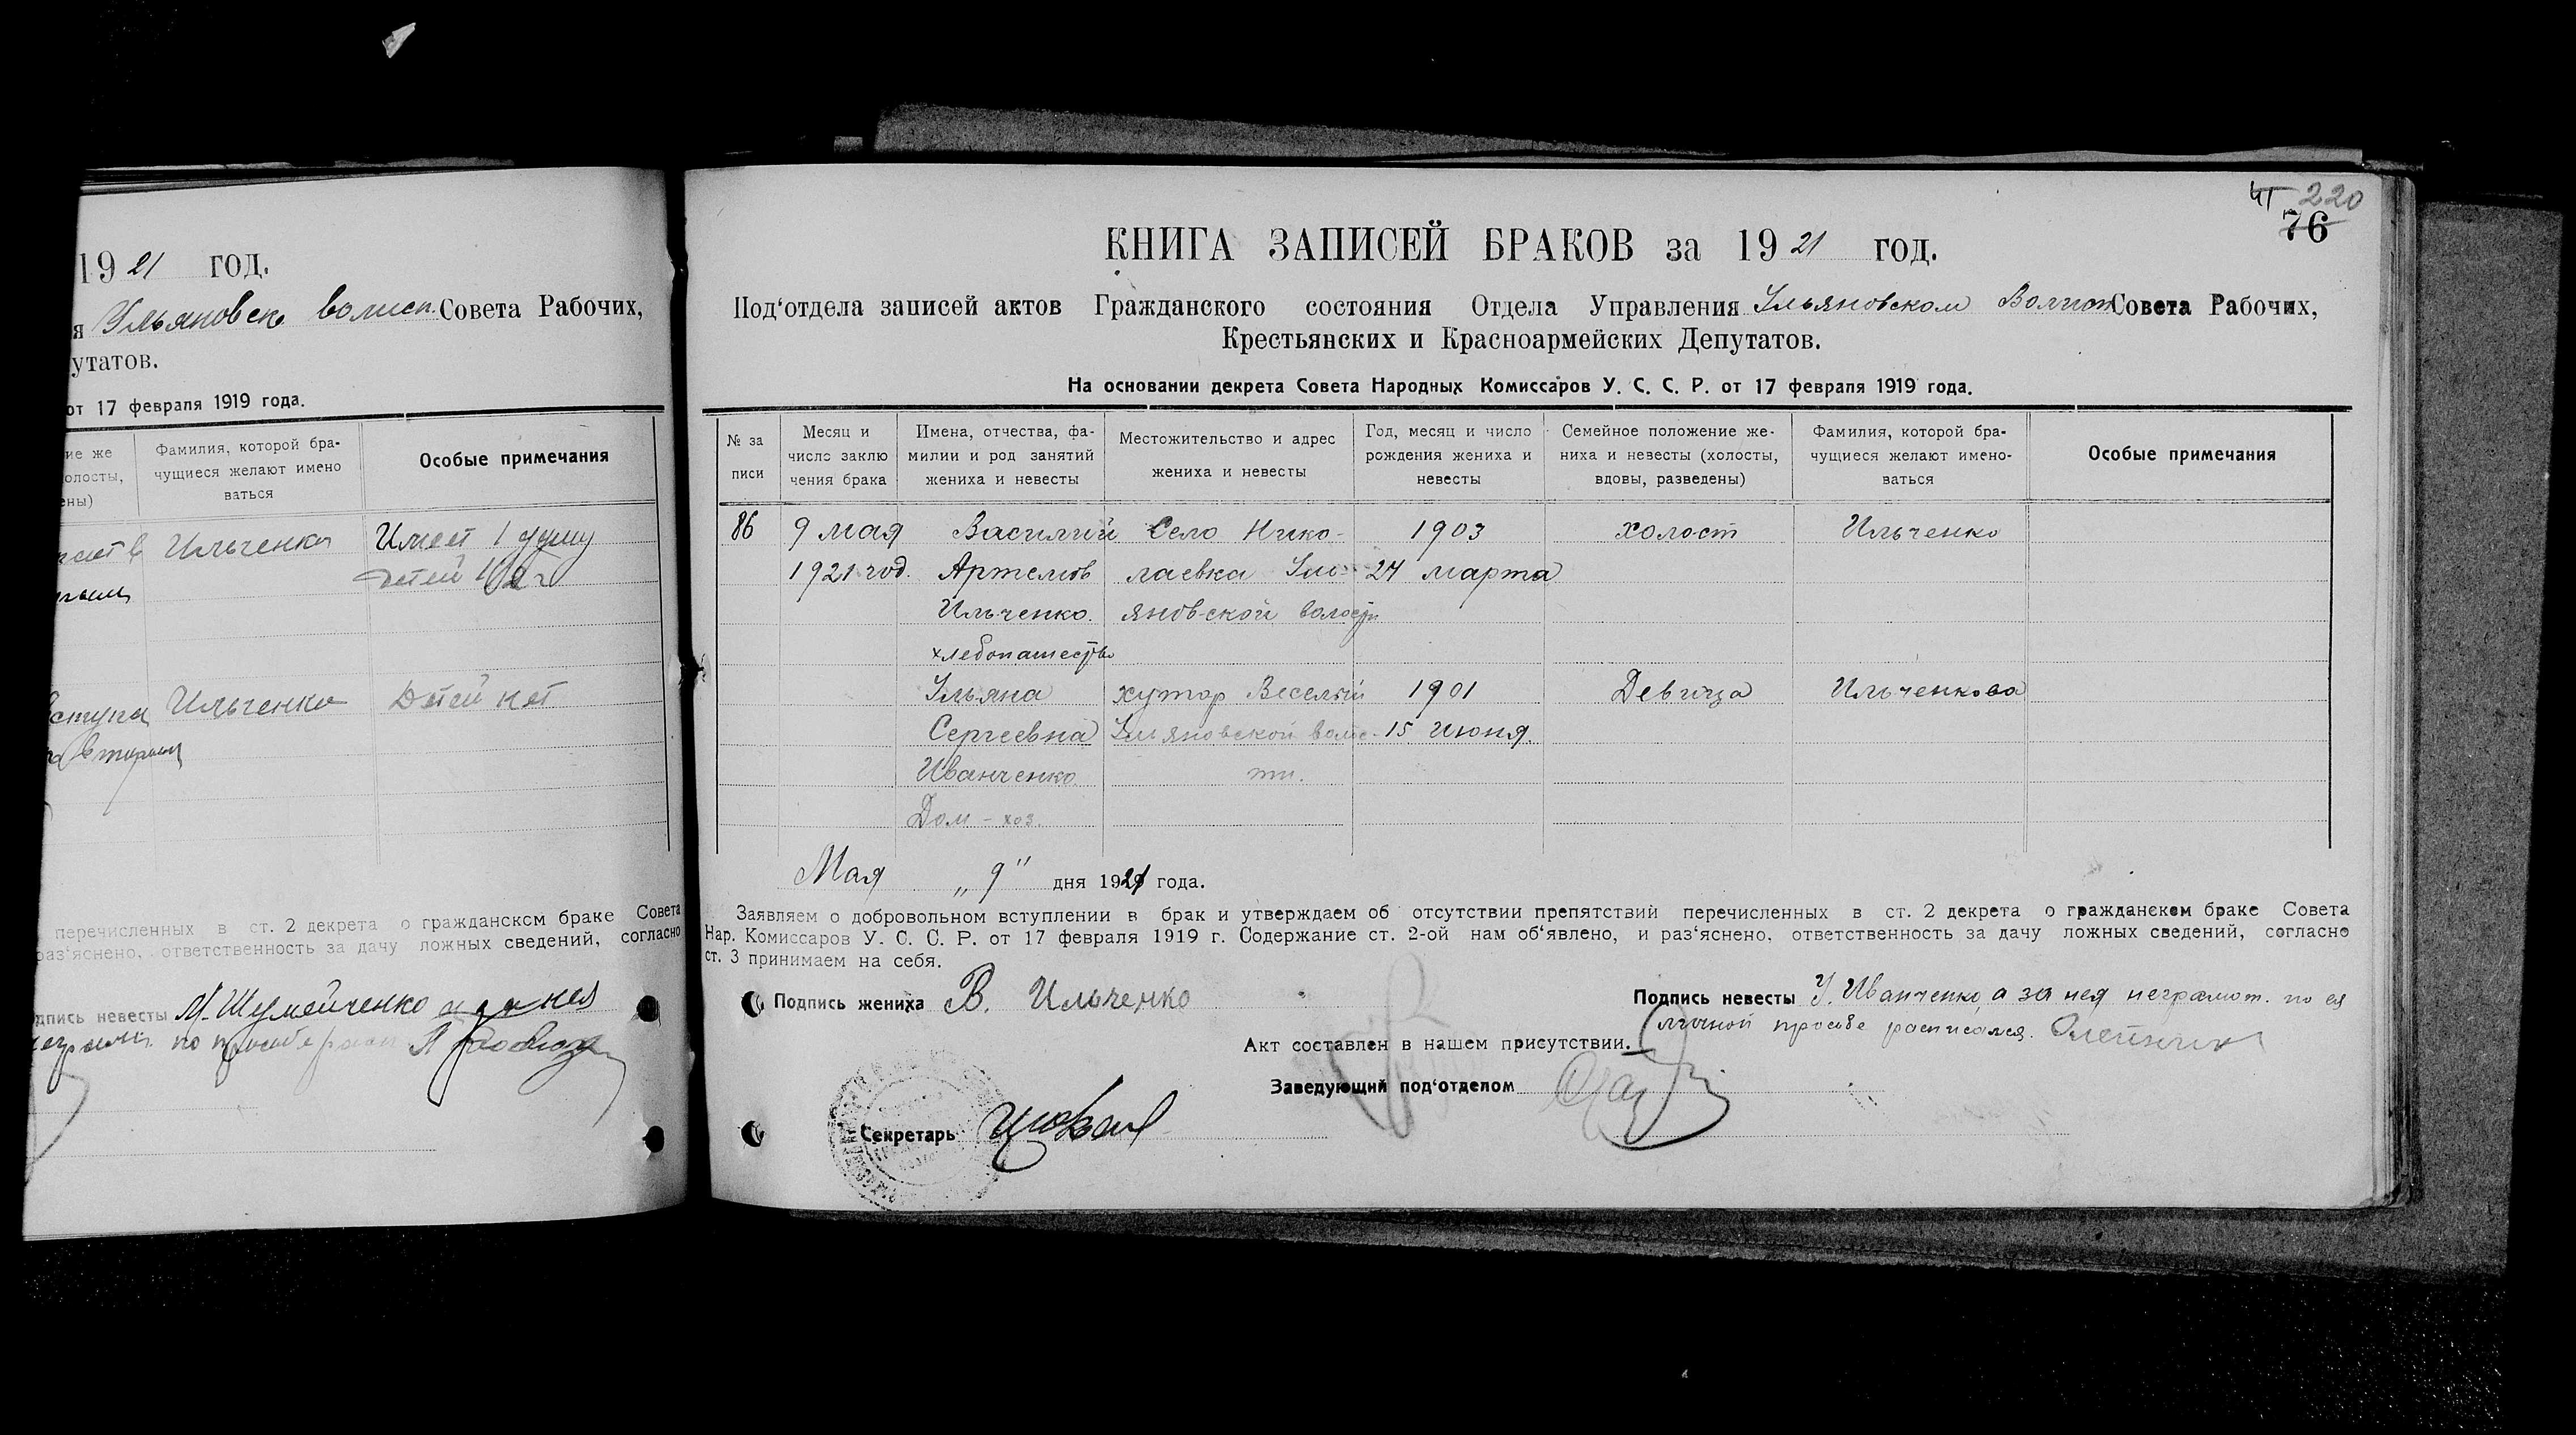 1921 год.
я Ульяновск волисп. Совета Рабочих,
утатов.
от 17 февраля 1919 года.
ие же
олосты,
ены)
Фамилия, которой бра-
чущиеся желают имено
ваться
Особые примечания
Ильченко
Имеет 1 душу
детей 1/2 г
Ильченко
Детей нет
перечисленных в ст. 2 декрета о гражданском браке Совета
раз'яснено, ответственность за дачу ложных сведений, согласно
дпись невесты М. Шумейченко а за нея
негромот. по просьбе
41 220
76
КНИГА ЗАПИСЕЙ БРАКОВ за 1921 год.
Под'отдела записей актов Гражданского состояния Отдела Управления Ульяновском Волисп Совета Рабочих,
Крестьянских и Красноармейских Депутатов.
На основании декрета Совета Народных Комиссаров У. С. С. Р. от 17 февраля 1919 года.
№ за
писи
Месяц и
число заклю
чения брака
Имена, отчества, фа-
милии и род занятий
жениха и невесты
Местожительство и адрес
жениха и невесты
Год, месяц и число
рождения жениха и
невесты
Семейное положение же-
ниха и невесты (холосты,
вдовы, разведены)
Фамилия, которой бра-
чущиеся желают имено-
ваться
Особые примечания
86 9 мая Василий Село Нико- 1903 холост Ильченко
1921 год. Артемов лаевка Уль- 24 марта
Ильченко. яновской волости
хлебопашество
Ульяна хутор Веселый 1901 Девица Ильченкова
Сергеевна Ульяновской волос- 15 июня.
Иванченко ти.
Дом-хоз.
Мая „9" дня 1921 года.
Заявляем о добровольном вступлении в брак и утверждаем об отсутствии препятствий перечисленных в ст. 2 декрета о гражданском браке Совета
Нар. Комиссаров У. С. С. Р. от 17 февраля 1919 г. Содержание ст. 2-ой нам об'явлено, и раз'яснено, ответственность за дачу ложных сведений, согласно
ст. 3 принимаем на себя.
Подпись жениха В. Ильченко
Подпись невесты У. Иванченко, а за нея неграмот. по ея
личной просьбе расписался. Олейник
Акт составлен в нашем присутствии.
Заведующий под'отделом
Секретарь